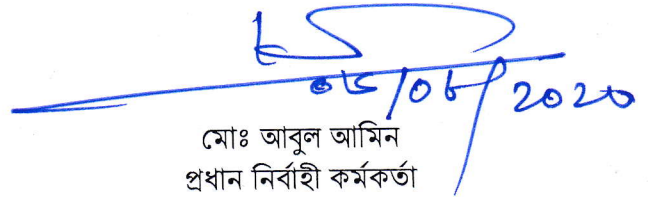 ০৮/০৮/২০২০
মোঃ আবুল আমিন
প্রধান নির্বাহী কর্মকর্তা